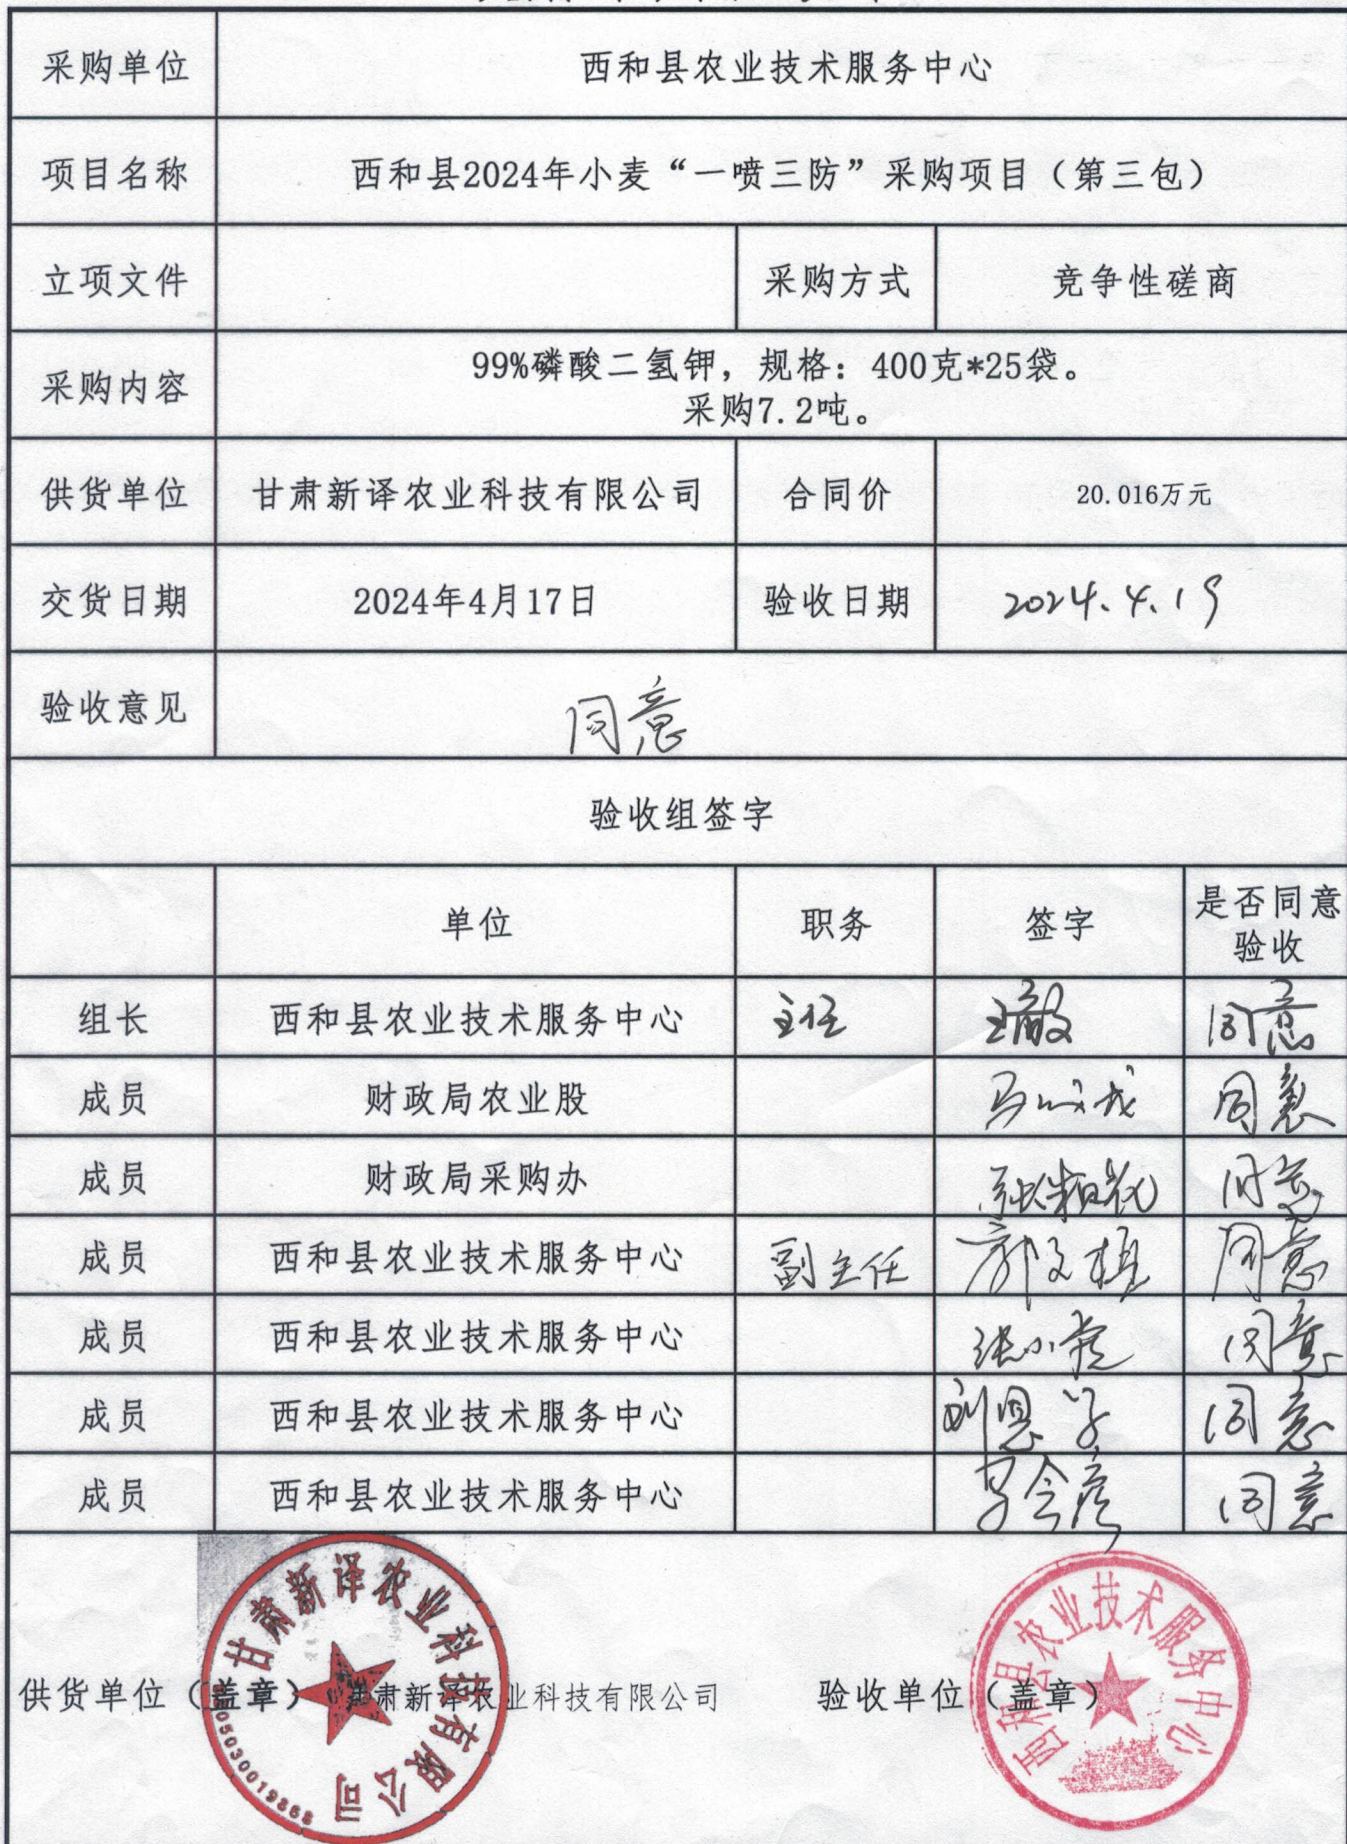 采购单位 西和县农业技术服务中心
项目名称 西和县2024年小麦“一喷三防”采购项目（第三包）
立项文件 采购方式 竞争性磋商
采购内容 99%磷酸二氢钾，规格：400克*25袋。
采购7.2吨。
供货单位 甘肃新译农业科技有限公司 合同价 20.016万元
交货日期 2024年4月17日 验收日期 2024.4.19
验收意见 同意
验收组签字
单位 职务 签字 是否同意
验收
组长 西和县农业技术服务中心 主任 同意
成员 财政局农业股 同意
成员 财政局采购办 同意
成员 西和县农业技术服务中心 副主任 同意
成员 西和县农业技术服务中心 张小虎 同意
成员 西和县农业技术服务中心 同意
成员 西和县农业技术服务中心 同意
供货单位（盖章）甘肃新译农业科技有限公司 验收单位（盖章）
甘肃新译农业科技有限公司
西和县农业技术服务中心